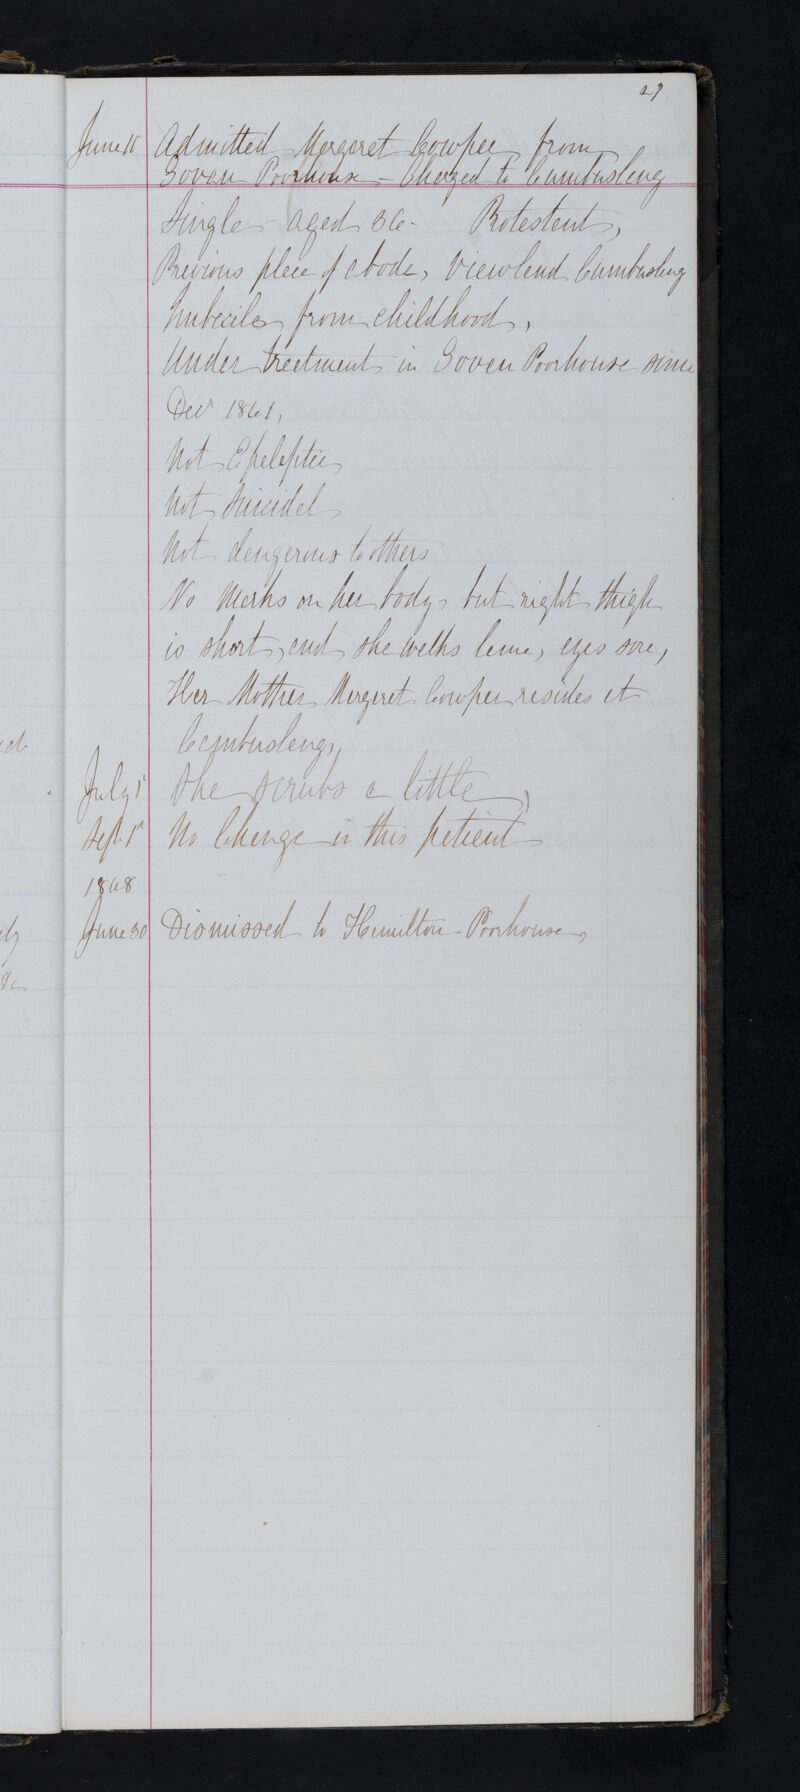 27
June 18 Admitted Margaret Cowper from
Govan Poorhouse - Charged to Cambuslang
Single - aged 36 - Protestant,
Previous place of abode, Viewland Cambuslang
Imbecile from childhood,
Under treatment in Govan Poorhouse since
Decr 1861,
Not Epileptic
Not Suicidal
Not dangerous to others
No Marks on her body, but right thigh
is short, and she walks lame, eyes sore,
Her Mother Margaret Cowper resides at
Cambuslang,
July 1st She scrubs a little,
Sept 1st No Change in this patient
1868
June 30 Dismissed to Hamilton Poorhouse,